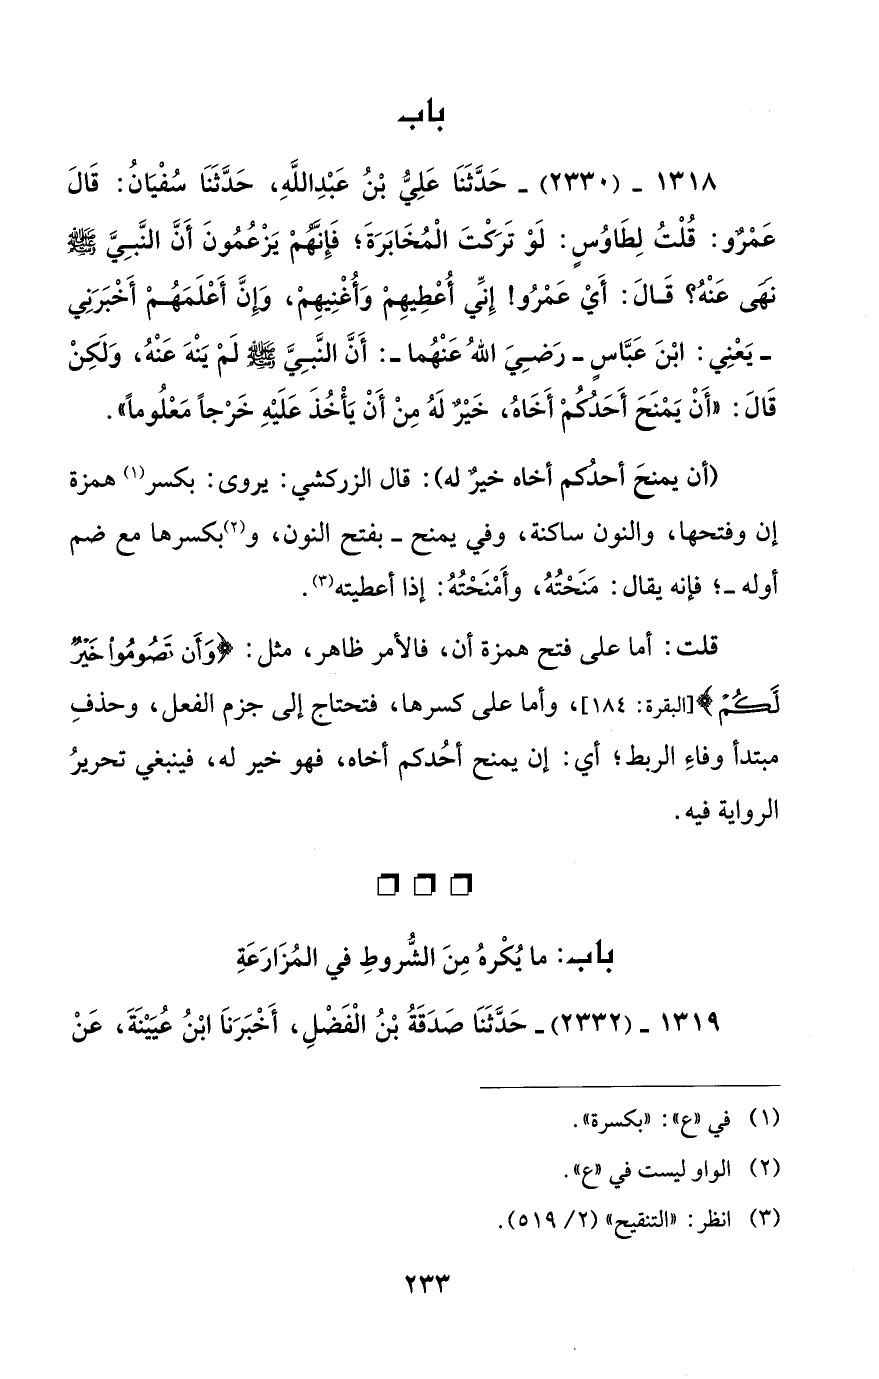 باب
١٣١٨ ـ (٢٣٣٠) ـ حَدَّثَنَا عَلِيُّ بْنُ عَبْدِاللَّهِ، حَدَّثَنَا سُفْيَانُ: قَالَ
عَمْرٌو: قُلْتُ لِطَاوُسٍ: لَوْ تَرَكْتَ الْمُخَابَرَةَ؛ فَإِنَّهُمْ يَزْعُمُونَ أَنَّ النَّبِيَّ ﷺ
نَهَى عَنْهُ؟ قَالَ: أَيْ عَمْرُو! إِنِّي أُعْطِيهِمْ وَأُغْنِيهِمْ، وَإِنَّ أَعْلَمَهُمْ أَخْبَرَنِي
ـ يَعْنِي: ابْنَ عَبَّاسٍ ـ رَضِيَ اللهُ عَنْهُما ـ: أَنَّ النَّبِيَّ ﷺ لَمْ يَنْهَ عَنْهُ، وَلَكِنْ
قَالَ: «أَنْ يَمْنَحَ أَحَدُكُمْ أَخَاهُ، خَيْرٌ لَهُ مِنْ أَنْ يَأْخُذَ عَلَيْهِ خَرْجاً مَعْلُوماً».
(أن يمنحَ أحدُكم أخاه خيرٌ له): قال الزركشي: يروى: بكسر(١) همزة
إن وفتحها، والنون ساكنة، وفي يمنح ـ بفتح النون، و(٢)بكسرها مع ضم
أوله ـ؛ فإنه يقال: مَنَحْتُهُ، وأَمْنَحْتُهُ: إذا أعطيته(٣).
قلت: أما على فتح همزة أن، فالأمر ظاهر، مثل: ﴿وَأَن تَصُومُوا۟ خَيْرٌ
لَّكُمْ﴾[البقرة: ١٨٤]، وأما على كسرها، فتحتاج إلى جزم الفعل، وحذفِ
مبتدأ وفاءِ الربط؛ أي: إن يمنح أحُدكم أخاه، فهو خير له، فينبغي تحريرُ
الرواية فيه.
باب: ما يُكْرهُ مِنَ الشُّروطِ في المُزَارَعَةِ
١٣١٩ ـ (٢٣٣٢) ـ حَدَّثَنَا صَدَقَةُ بْنُ الْفَضْلِ، أَخْبَرَنَا ابْنُ عُيَيْنَةَ، عَنْ
(١) في «ع»: «بكسرة».
(٢) الواو ليست في «ع».
(٣) انظر: «التنقيح» (٢/ ٥١٩).
٢٣٣